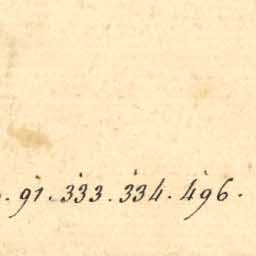 . 91. 333. 334. 496.